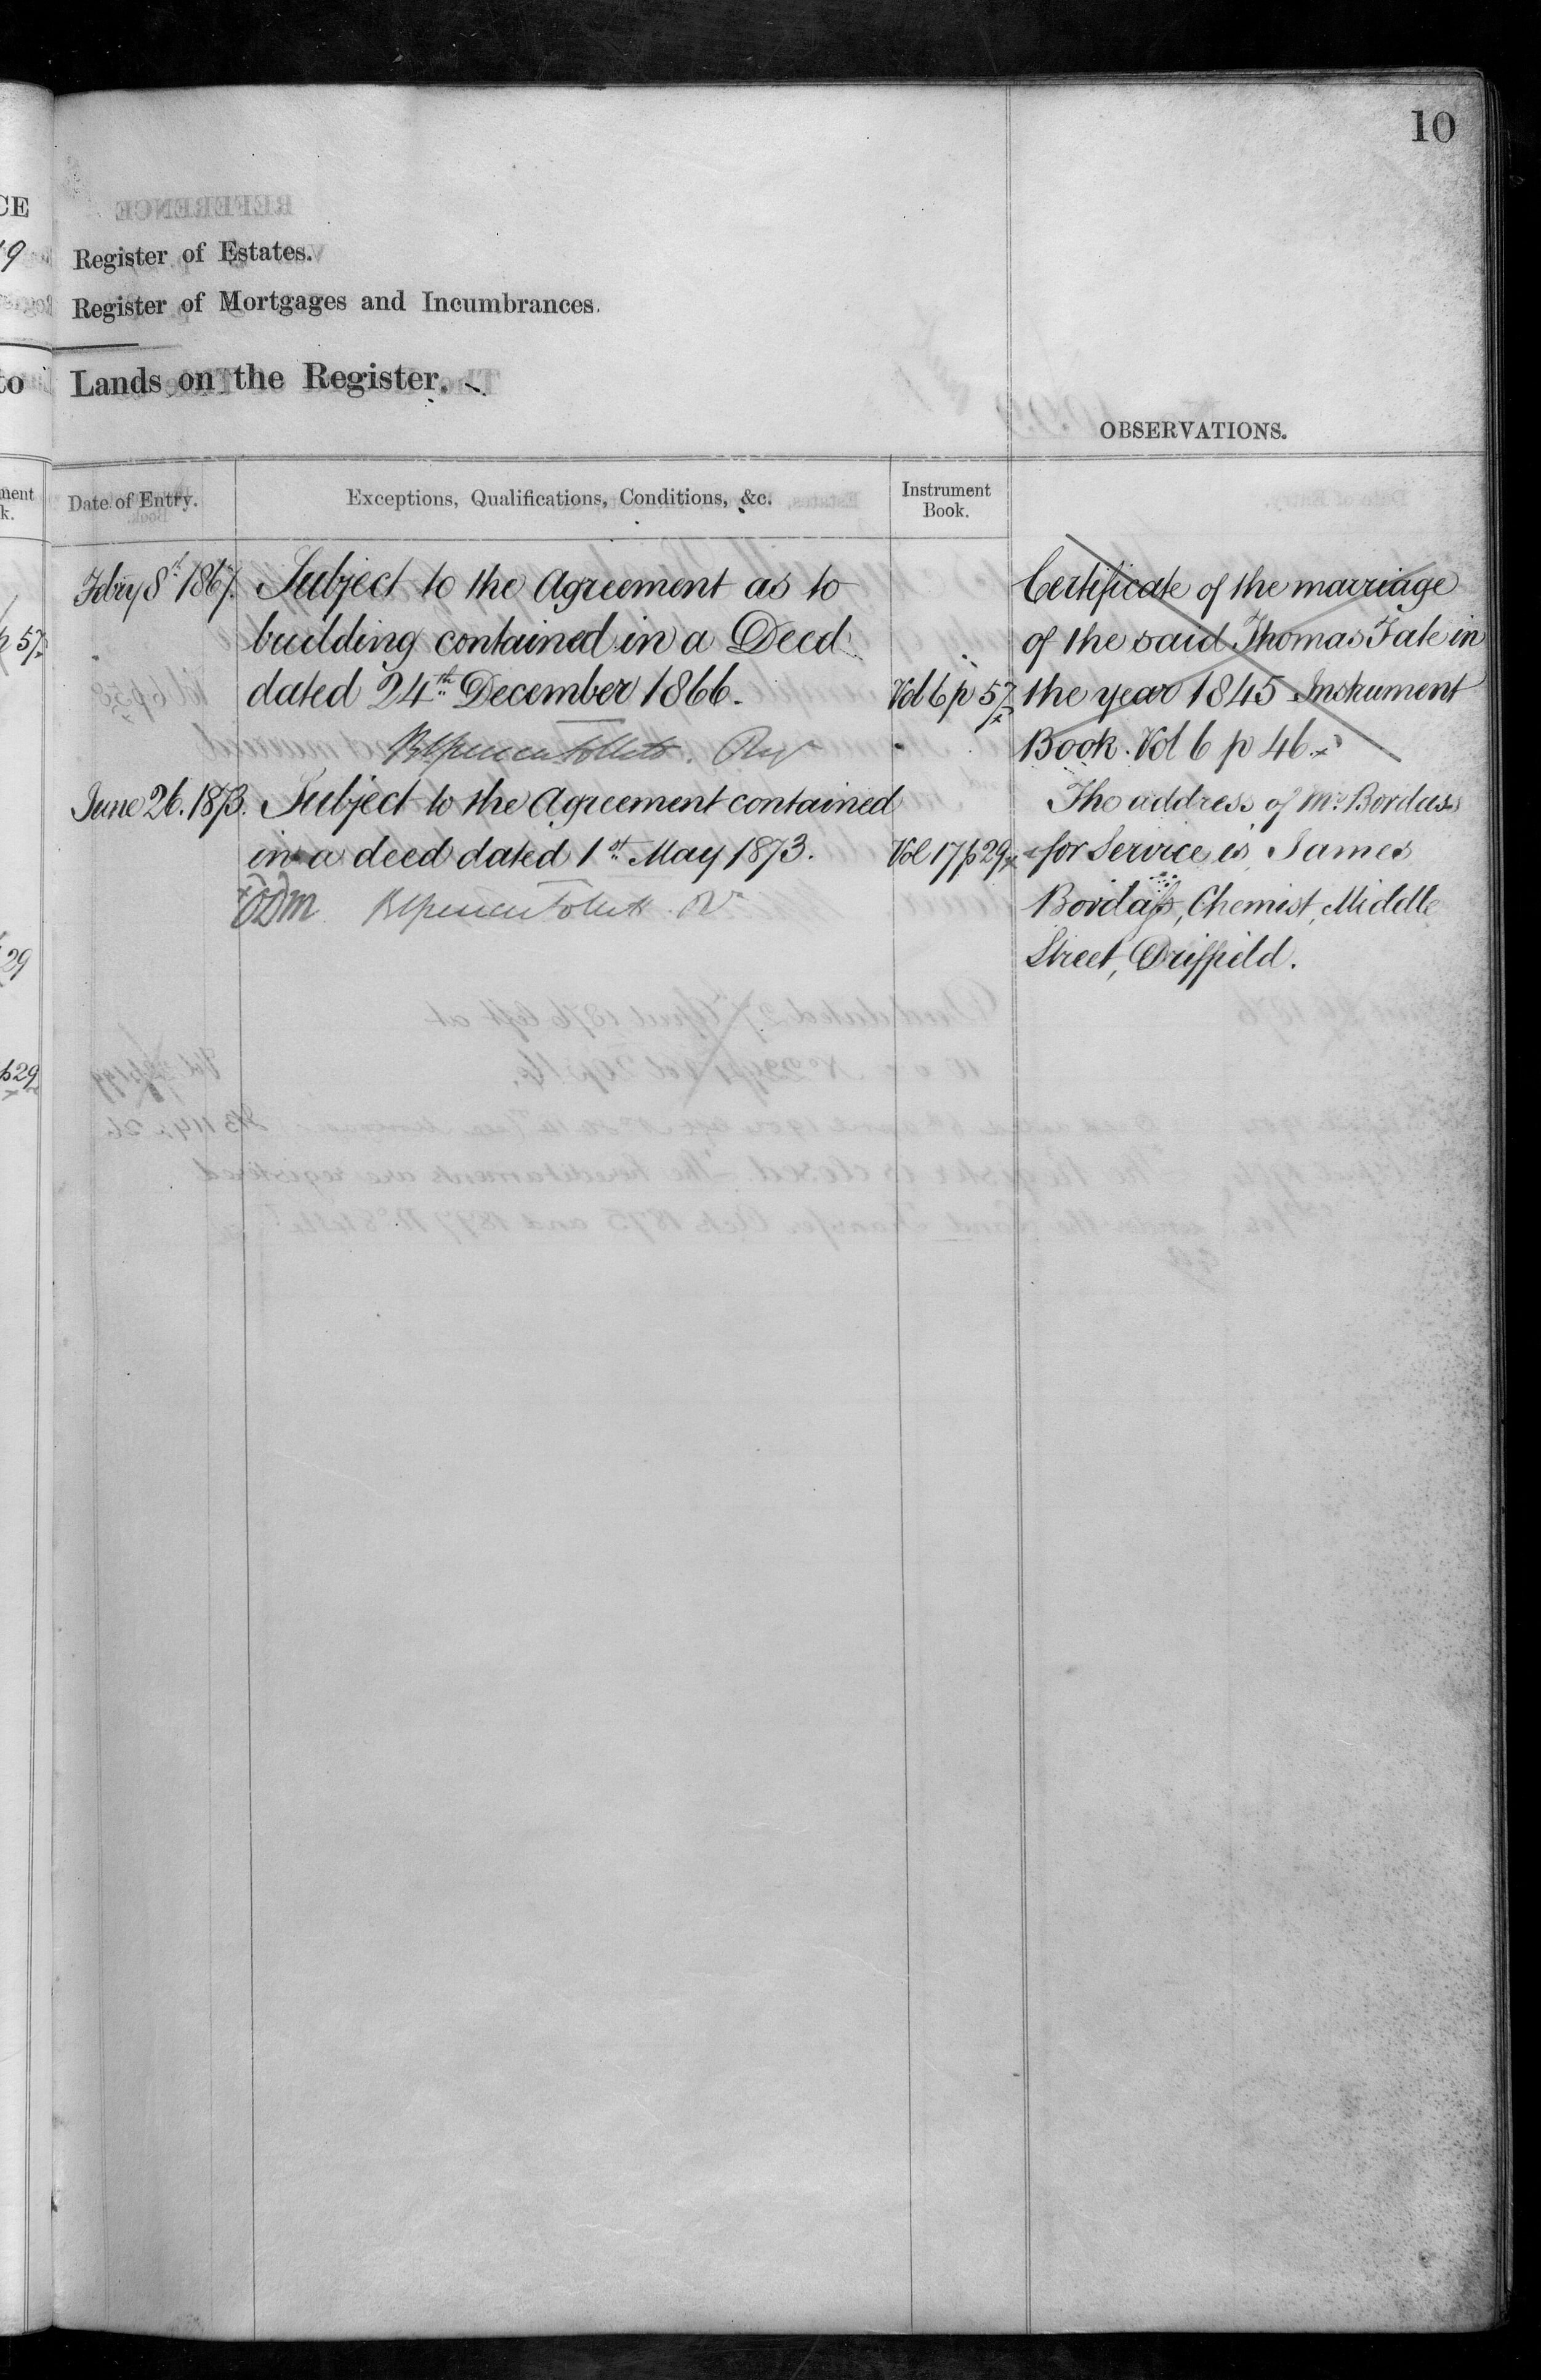 10
CE
19
REFERENCE
Register of Estates.
Register of Mortgages and Incumbrances.
to
Lands on the Register.
OBSERVATIONS.
ment
k.
Date of Entry.
Exceptions, Qualifications, Conditions, &c.
Instrument
Book.
Febry 8th 1867. Subject to the Agreement as to
building contained in a Deed
dated 24th December 1866. Vol 6 p 57
p 57
June 26. 1873. Subject to the Agreement contained
in a deed dated 1st May 1873. Vol 17 p 29
ODM
29
p 29
Certificate of the marriage
of the said Thomas Tate in
the year 1845 Instrument
Book. Vol 6 p 46
The address of Mr. Bordass
for Service is James
Bordass, Chemist, Middle
Street, Driffield.